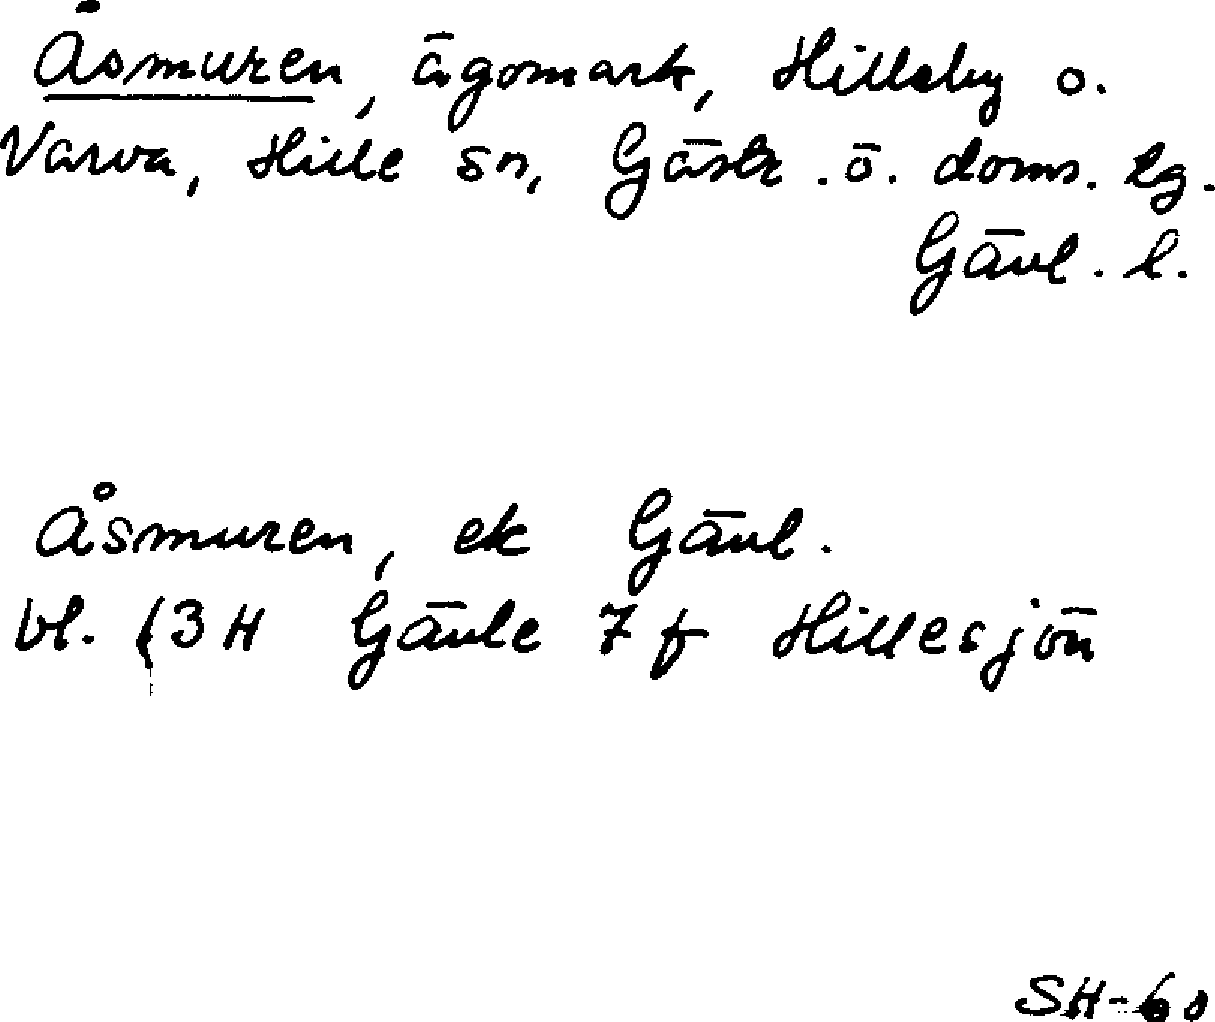 Åsmuren, ägomark, Hillsby o.
Varva, Hille sn, Gästr. ö. doms. lg.
Gävl. l.
Åsmuren, ek Gävl.
bl. 13H Gävle 7f Hillesjön
SH-60